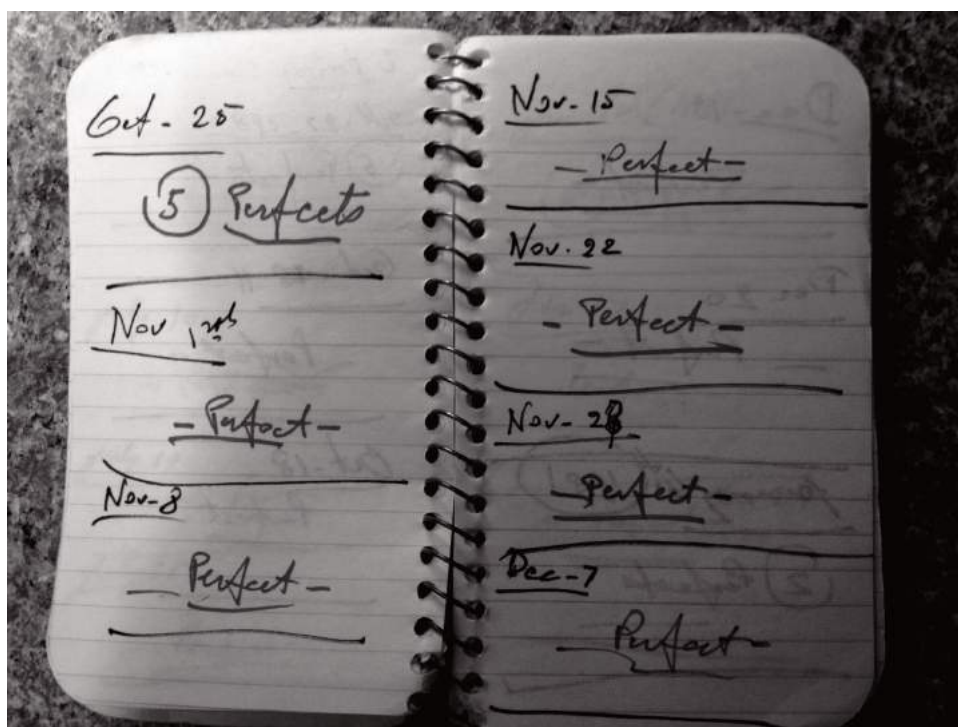 Oct - 25
5 Perfects
Nov 1
- Perfect -
Nov-8
- Perfect -
Nov-15
- Perfect -
Nov. 22
- Perfect -
Nov-28
- Perfect -
Dec-7
- Perfect -